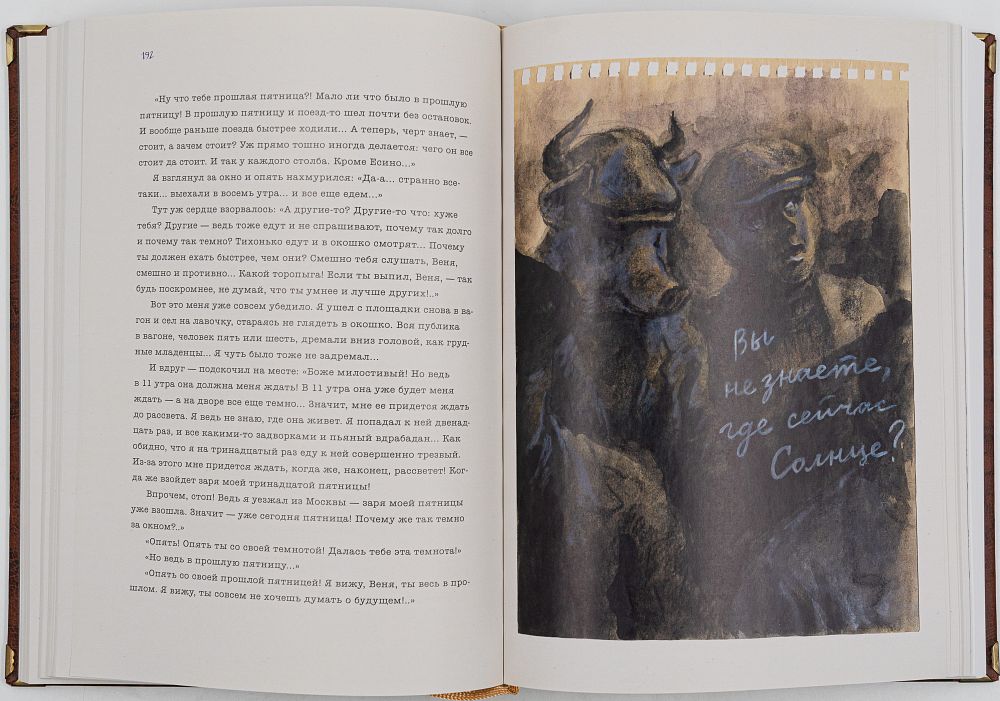 192
«Ну что тебе прошлая пятница?! Мало ли что было в прошлую
пятницу! В прошлую пятницу и поезд-то шел почти без остановок.
И вообще раньше поезда быстрее ходили... А теперь, черт знает, —
стоит, а зачем стоит? Уж прямо тошно иногда делается: чего он все
стоит да стоит. И так у каждого столба. Кроме Есино...»
Я взглянул за окно и опять нахмурился: «Да-а... странно все-
таки... выехали в восемь утра... и все еще едем...»
Тут уж сердце взорвалось: «А другие-то? Другие-то что: хуже
тебя? Другие — ведь тоже едут и не спрашивают, почему так долго
и почему так темно? Тихонько едут и в окошко смотрят... Почему
ты должен ехать быстрее, чем они? Смешно тебя слушать, Веня,
смешно и противно... Какой торопыга! Если ты выпил, Веня, — так
будь поскромнее, не думай, что ты умнее и лучше других!..»
Вот это меня уже совсем убедило. Я ушел с площадки снова в ва-
гон и сел на лавочку, стараясь не глядеть в окошко. Вся публика
в вагоне, человек пять или шесть, дремали вниз головой, как груд-
ные младенцы... Я чуть было тоже не задремал...
И вдруг — подскочил на месте: «Боже милостивый! Но ведь
в 11 утра она должна меня ждать! В 11 утра она уже будет меня
ждать — а на дворе все еще темно... Значит, мне ее придется ждать
до рассвета. Я ведь не знаю, где она живет. Я попадал к ней двенад-
цать раз, и все какими-то задворками и пьяный вдрабадан... Как
обидно, что я на тринадцатый раз еду к ней совершенно трезвый.
Из-за этого мне придется ждать, когда же, наконец, рассветет! Ког-
да же взойдет заря моей тринадцатой пятницы!
Впрочем, стоп! Ведь я уезжал из Москвы — заря моей пятницы
уже взошла. Значит — уже сегодня пятница! Почему же так темно
за окном?..»
«Опять! Опять ты со своей темнотой! Далась тебе эта темнота!»
«Но ведь в прошлую пятницу...»
«Опять со своей прошлой пятницей! Я вижу, Веня, ты весь в про-
шлом. Я вижу, ты совсем не хочешь думать о будущем!..»
Вы
не знаете,
где сейчас
Солнце?